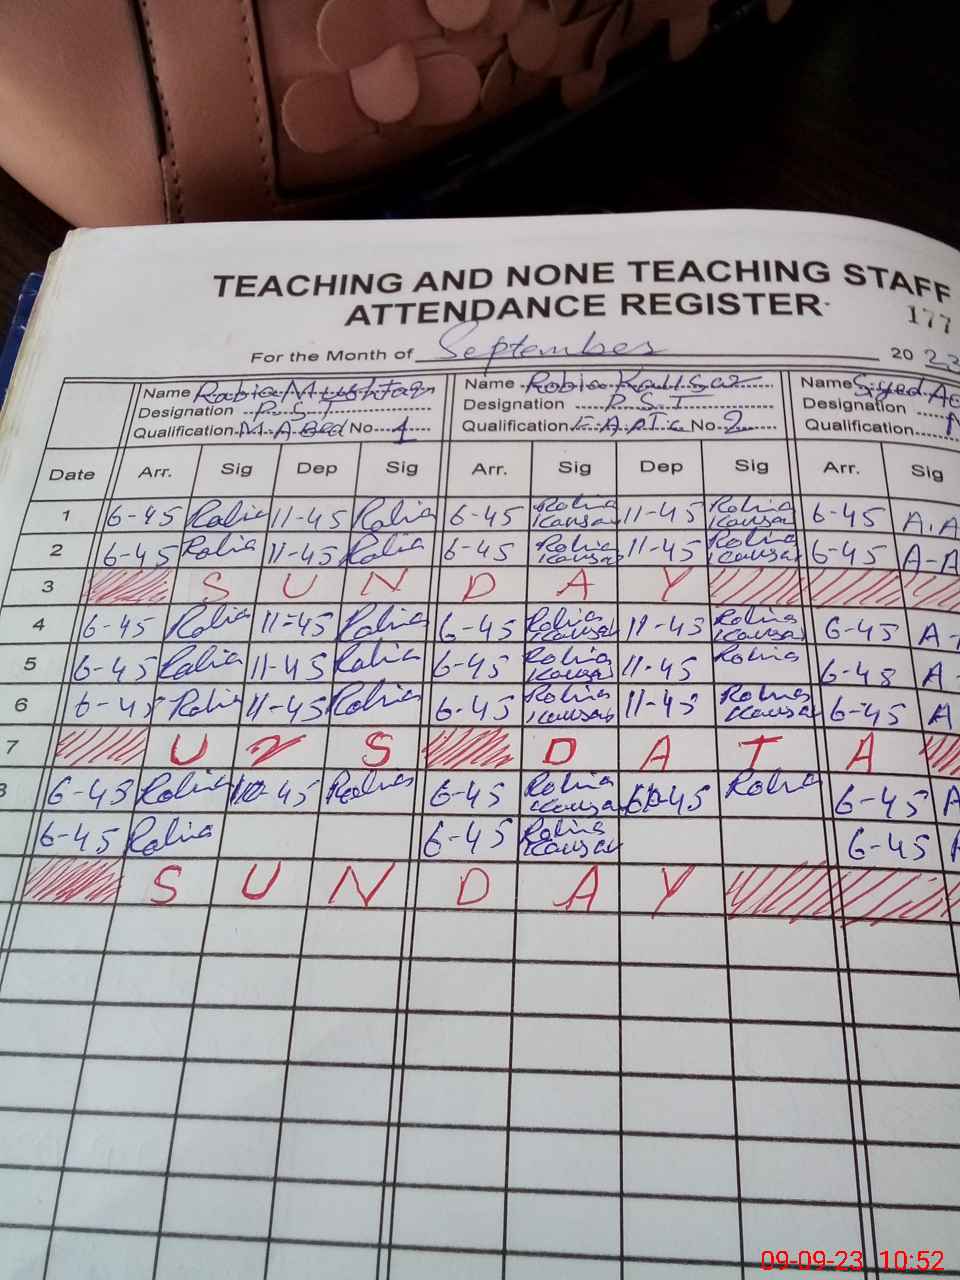 TEACHING AND NONE TEACHING STAFF
ATTENDANCE REGISTER
177
For the Month of September 20 23
Name Rabia Mushtaq Name Robia Kausar Name Syed
Designation P.S.T Designation P.S.T Designation
Qualification M.A Bed No 1 Qualification No 2 Qualification
Date Arr. Sig Dep Sig Arr. Sig Dep Sig Arr. Sig
1 6-45 Rabia 11-45 Rabia 6-45 Robina Kausar 11-45 Robina Kausar 6-45 A.A
2 6-45 Rabia 11-45 Rabia 6-45 Robina Kausar 11-45 Robina Kausar 6-45 A-A
3 S U N D A Y
4 6-45 Rabia 11-45 Rabia 6-45 Robina Kausar 11-45 Robina Kausar 6-45 A-
5 6-45 Rabia 11-45 Rabia 6-45 Robina Kausar 11-45 Robina 6-48 A-
6 6-45 Rabia 11-45 Rabia 6-45 Robina Kausar 11-45 Robina Kausar 6-45 A
7 U R S D A T A
8 6-45 Rabia 10-45 Rabia 6-45 Robina Kausar 10-45 Robina 6-45 A
6-45 Rabia 6-45 Robina Kausar 6-45
S U N D A Y
09-09-23 10:52